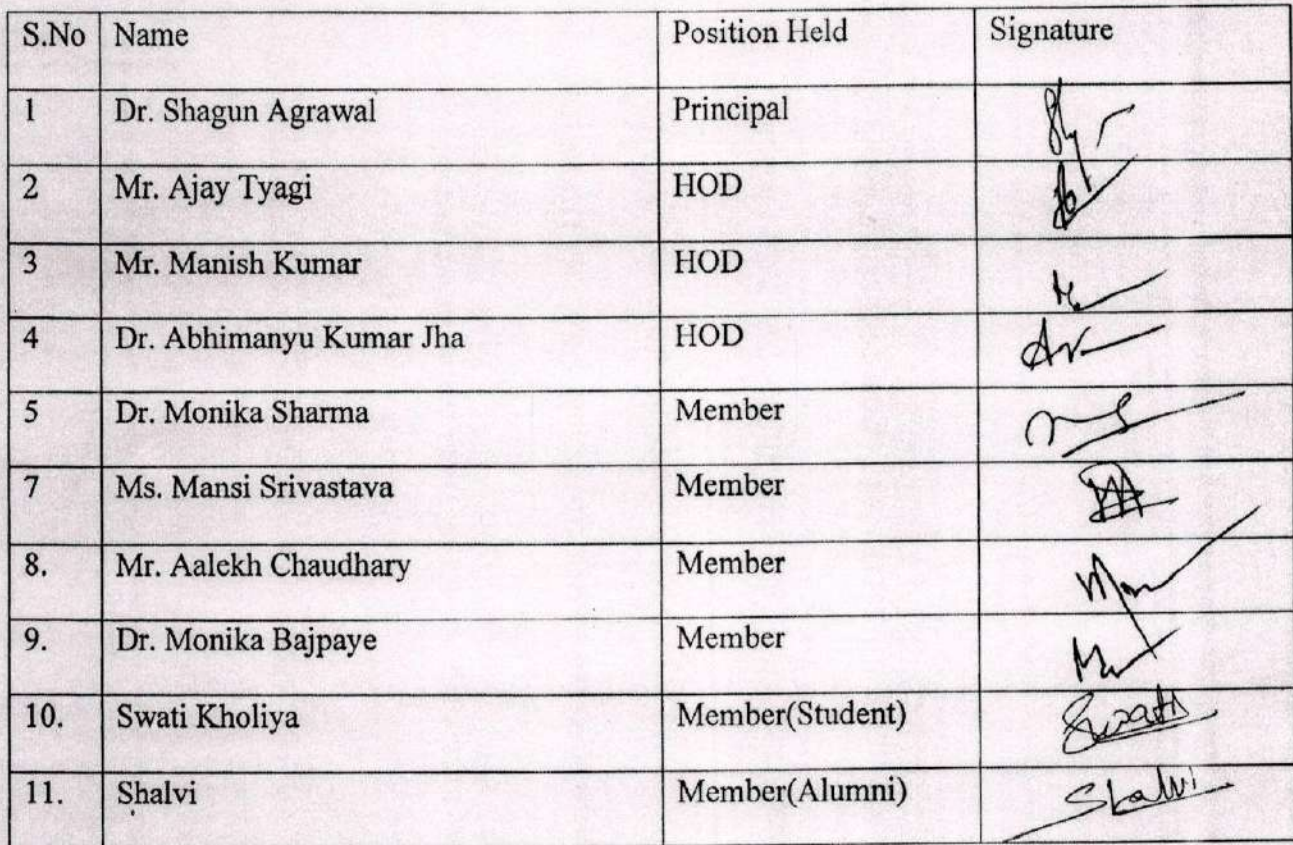 S.No Name Position Held Signature
1 Dr. Shagun Agrawal Principal
2 Mr. Ajay Tyagi HOD
3 Mr. Manish Kumar HOD
4 Dr. Abhimanyu Kumar Jha HOD
5 Dr. Monika Sharma Member
7 Ms. Mansi Srivastava Member
8. Mr. Aalekh Chaudhary Member
9. Dr. Monika Bajpaye Member
10. Swati Kholiya Member(Student) Swati
11. Shalvi Member(Alumni) Shalvi